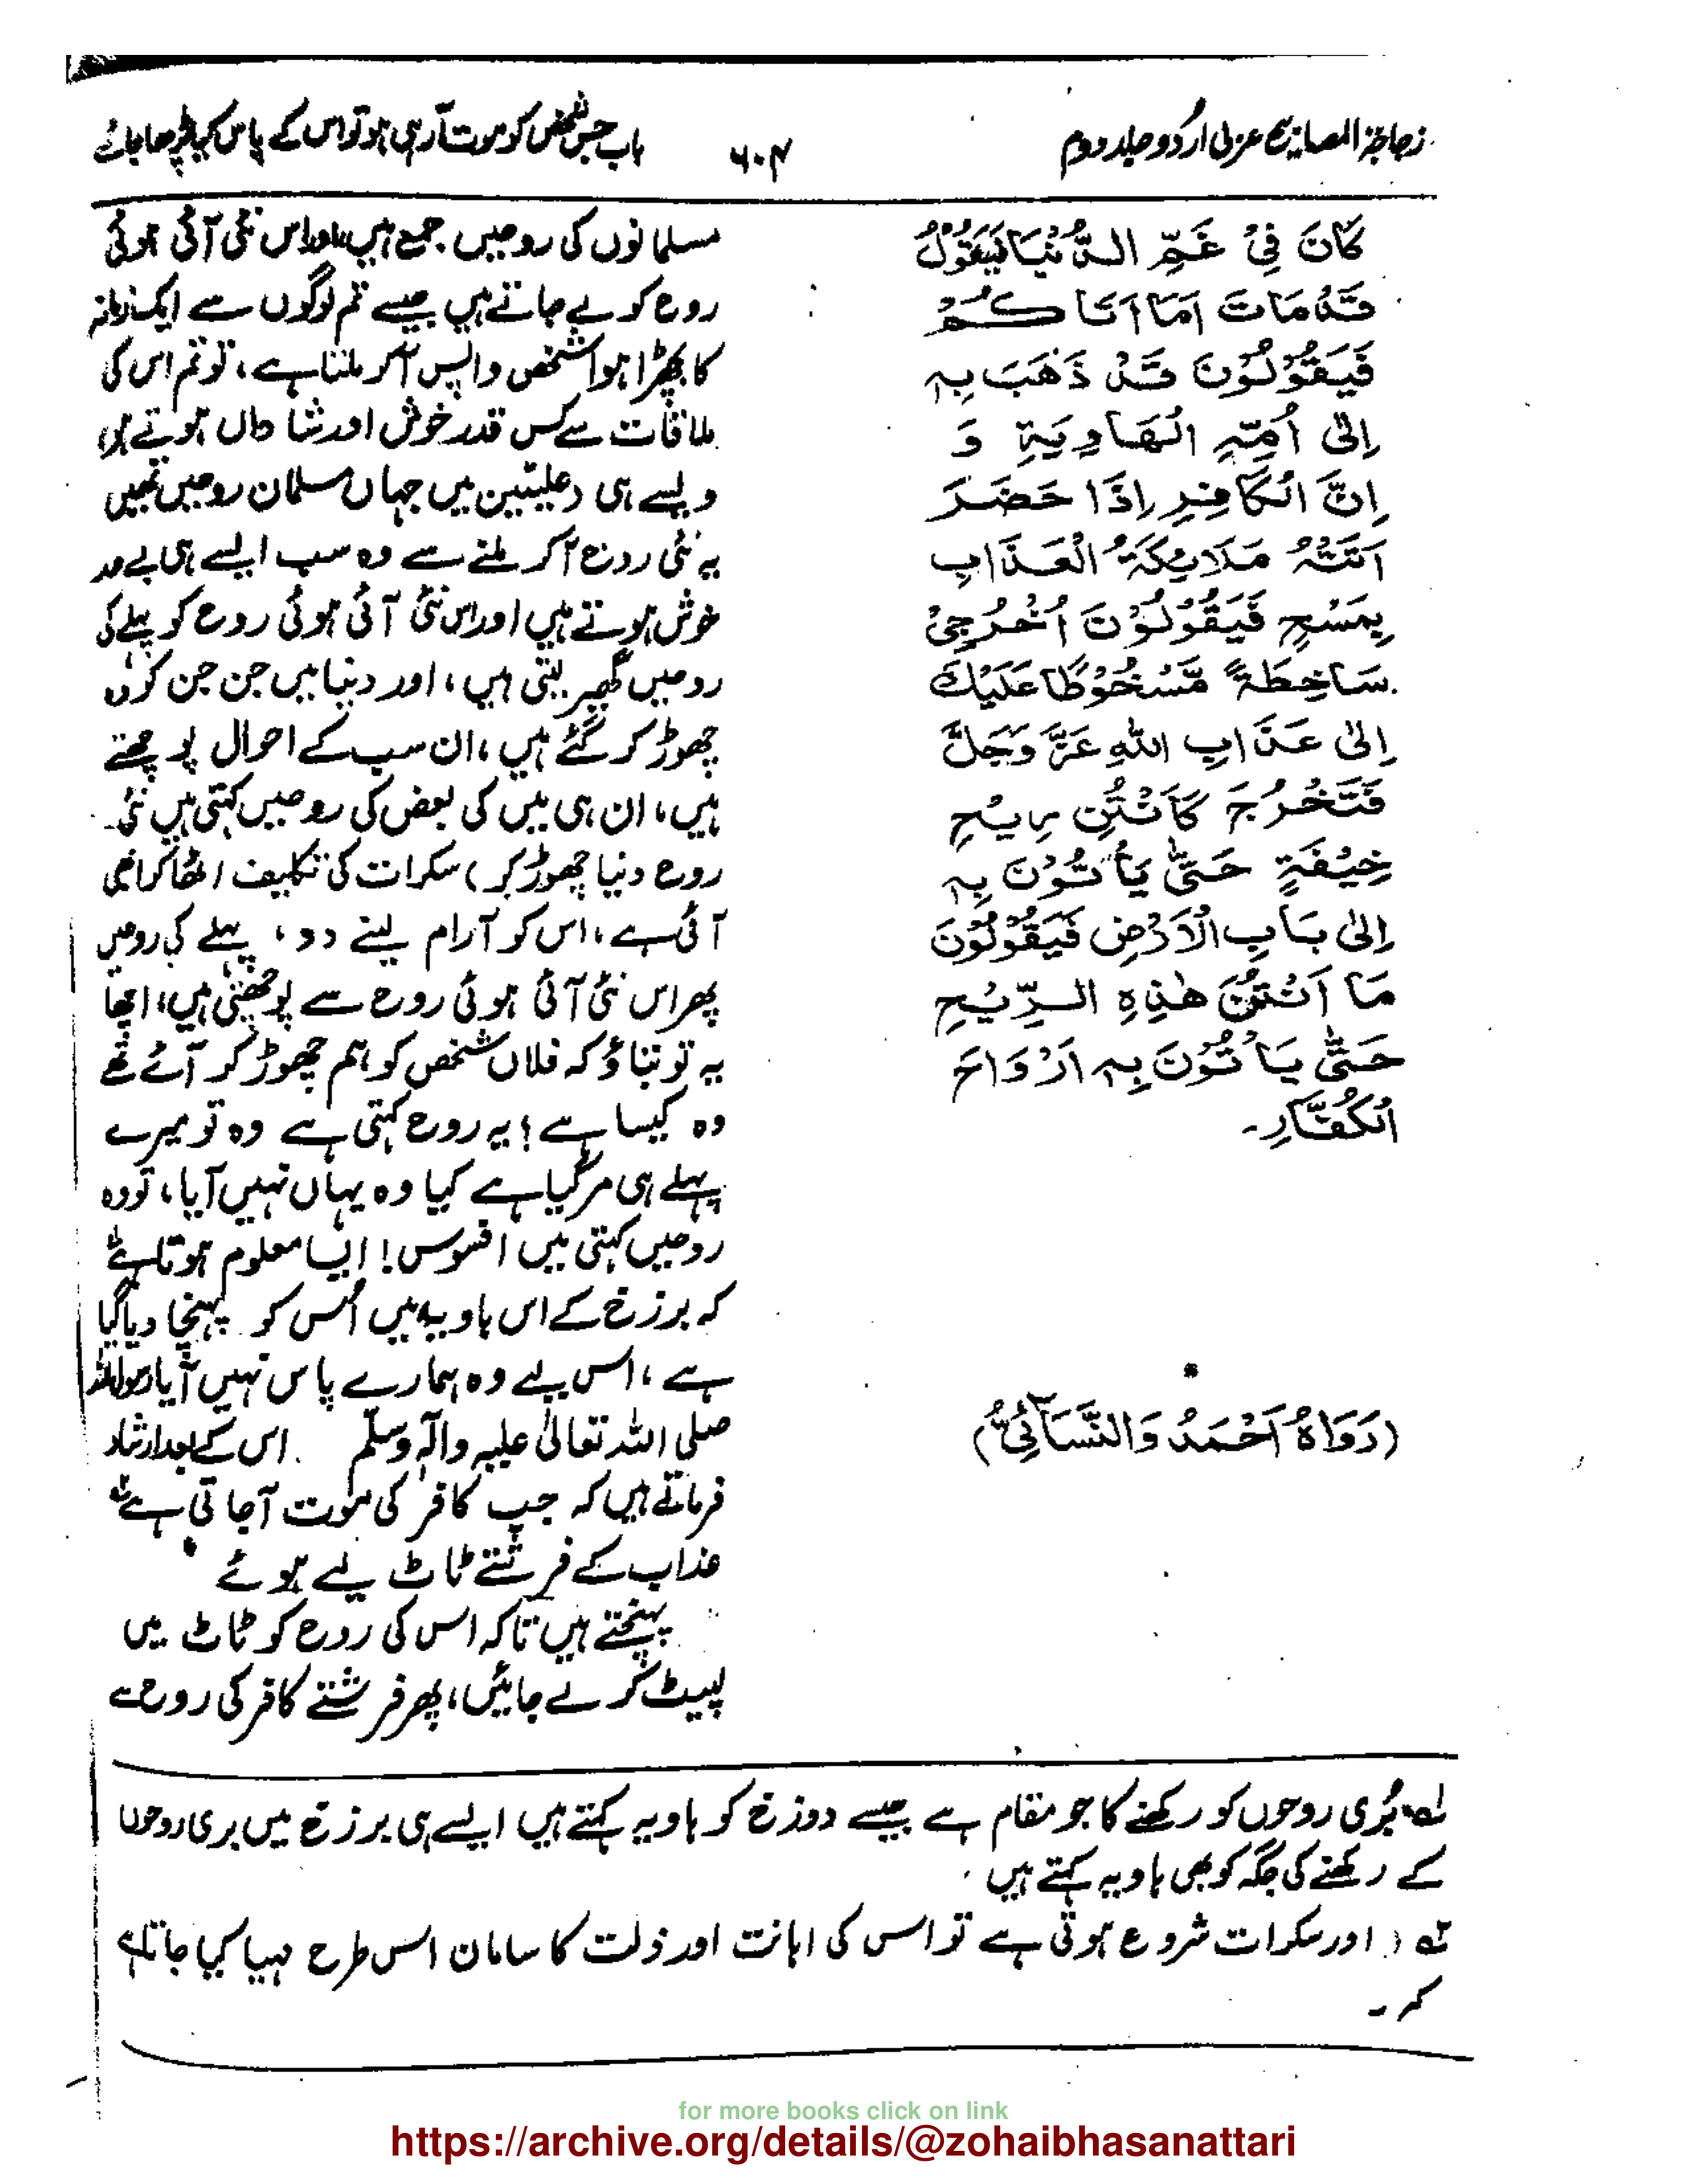 زجاجۃ المصابیح عربی اردو جلد دوم
۶۰۴
باب جس شخص کو موت آرہی ہو تو اس کے پاس کیا پڑھا جائے
كَانَ فِیْ غَمِّ الدُّنْیَا فَیَقُوْلُ
قَدْ مَاتَ اَمَا اَتَاكُمْ
فَیَقُوْلُوْنَ قَدْ ذَهَبَ بِهٖ
اِلٰی اُمِّهِ الْهَاوِیَةِ وَ
اِنَّ الْكَافِرَ اِذَا حَضَرَ
اَتَتْهُ مَلَائِكَةُ الْعَذَابِ
بِمَسْحٍ فَیَقُوْلُوْنَ اُخْرُجِیْ
سَاخِطَةً مَّسْخُوْطًا عَلَیْكَ
اِلٰی عَذَابِ اللهِ عَزَّ وَجَلَّ
فَتَخْرُجَ كَاَنْتَنِ رِیْحِ
جِیْفَةٍ حَتّٰی یَأْتُوْنَ بِهٖ
اِلٰی بَابِ الْاَرْضِ فَیَقُوْلُوْنَ
مَا اَنْتَنَ هٰذِهِ الرِّیْحِ
حَتّٰی یَأْتُوْنَ بِهٖ اَرْوَاحَ
الْكُفَّارِ۔
(رَوَاهُ اَحْمَدُ وَالنَّسَآئِیُّ)
مسلمانوں کی روحیں جمع ہیں اور اس نئی آئی ہوئی
روح کو لے جاتے ہیں جیسے تم لوگوں سے ایک زمانہ
کا بچھڑا ہوا شخص واپس آکر ملتا ہے، تو تم اس کی
ملاقات سے کس قدر خوش اور شاداں ہوتے ہو
ویسے ہی (علیین میں جہاں مسلمان روحیں تھیں
یہ نئی روح آکر ملنے سے وہ سب ایسے ہی بے حد
خوش ہوتے ہیں اور اس نئی آئی ہوئی روح کو پہلے کی
روحیں گھیر لیتی ہیں، اور دنیا میں جن جن کو
چھوڑ کر گئے ہیں، ان سب کے احوال پوچھتے
ہیں، ان ہی میں کی بعض کی روحیں کہتی ہیں نئی
روح دنیا چھوڑ کر) سکرات کی تکلیف اٹھا کر ابھی
آئی ہے، اس کو آرام لینے دو، پہلے کی روحیں
پھر اس نئی آئی ہوئی روح سے پوچھتی ہیں، اچھا
یہ تو بتاؤ کہ فلاں شخص کو ہم چھوڑ کر آئے تھے
وہ کیسا ہے؛ یہ روح کہتی ہے وہ تو میرے
پہلے ہی مر گیا ہے کیا وہ یہاں نہیں آیا، تو وہ
روحیں کہتی ہیں افسوس! ایسا معلوم ہوتا ہے
کہ برزخ کے اس ہاویہ میں اُس کو پہنچا دیا گیا
ہے، اس لیے وہ ہمارے پاس نہیں آیا رسول اللہ
صلی اللہ تعالیٰ علیہ وآلہٖ وسلم اس کے بعد ارشاد
فرماتے ہیں کہ جب کافر کی موت آجاتی ہے
عذاب کے فرشتے ٹاٹ لیے ہوئے
پہنچتے ہیں تاکہ اس کی روح کو ٹاٹ میں
لپیٹ کر لے جائیں، پھر فرشتے کافر کی روح سے
لہ بُری روحوں کو رکھنے کا جو مقام ہے جیسے دوزخ کو ہاویہ کہتے ہیں ایسے ہی برزخ میں بری روحوں
کے رکھنے کی جگہ کو بھی ہاویہ کہتے ہیں
۲ہ ( اور سکرات شروع ہوتی ہے تو اس کی اہانت اور ذلت کا سامان اس طرح مہیا کیا جاتا ہے
کہ۔
for more books click on link
https://archive.org/details/@zohaibhasanattari